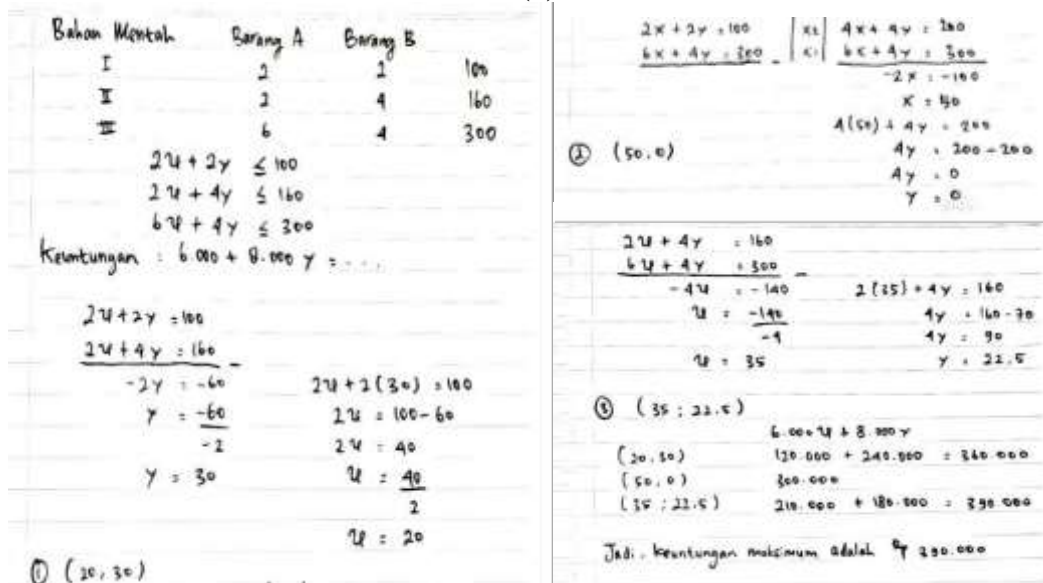 Bahan Mentah Barang A Barang B
I 2 2 100
II 2 4 160
III 6 4 300
2x + 2y ≤ 100
2x + 4y ≤ 160
6x + 4y ≤ 300
Keuntungan : 6.000 + 8.000 y = ....
2x + 2y = 100
2x + 4y = 160 -
-2y = -60
y = -60
-2
y = 30
2x + 2(30) = 100
2x = 100 - 60
2x = 40
x = 40
2
x = 20
① (20, 30)
2x + 2y = 100 | x2 | 4x + 4y = 200
6x + 4y = 300 - | x1 | 6x + 4y = 300
-2x = -100
x = 50
4(50) + 4y = 200
4y = 200 - 200
4y = 0
y = 0
② (50, 0)
2x + 4y = 160
6x + 4y = 300 -
-4x = -140
x = -140
-4
x = 35
2(35) + 4y = 160
4y = 160 - 70
4y = 90
y = 22.5
③ (35 ; 22.5)
6.000x + 8.000y
(20, 30) 120.000 + 240.000 = 360.000
(50, 0) 300.000
(35 ; 22.5) 210.000 + 180.000 = 390.000
Jadi, keuntungan maksimum adalah Rp 390.000